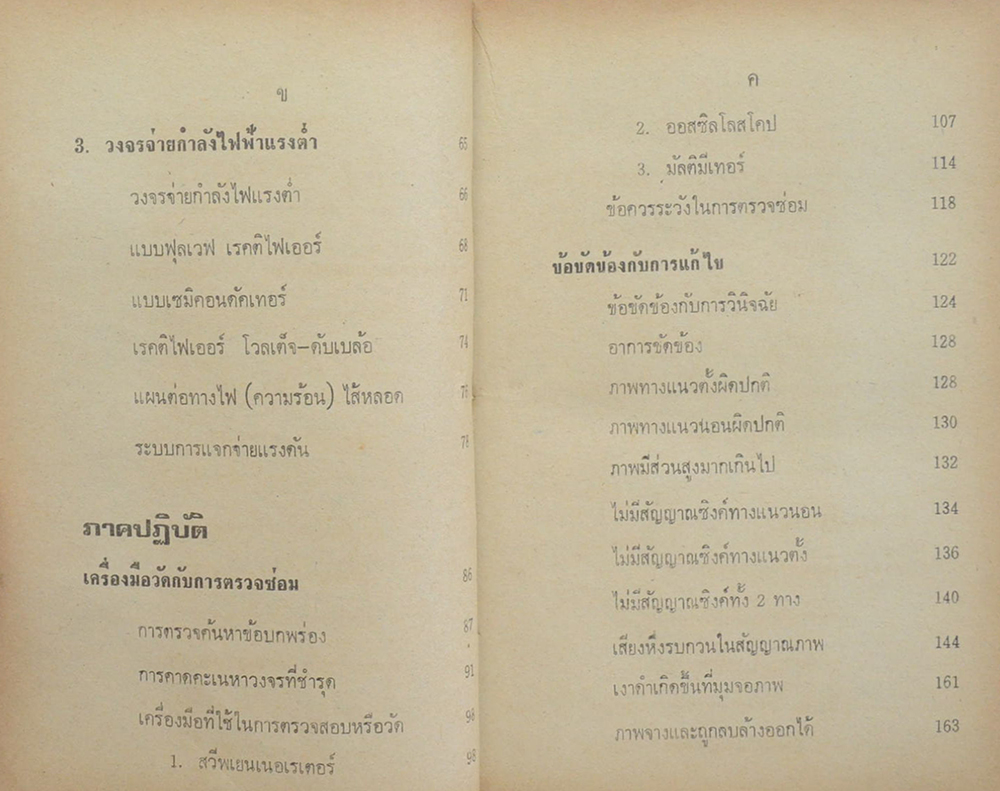 ข
3. วงจรจ่ายกำลังไฟฟ้าแรงต่ำ 66
วงจรจ่ายกำลังไฟแรงต่ำ 66
แบบฟุลเวฟ เรคติไฟเออร์ 68
แบบเซมิคอนดัคเทอร์ 71
เรคติไฟเออร์ โวลเต็จ-ดับเบล้อ 74
แผนต่อทางไฟ (ความร้อน) ไส้หลอด 76
ระบบการแจกจ่ายแรงดัน 78
ภาคปฏิบัติ
เครื่องมือวัดกับการตรวจซ่อม 86
การตรวจค้นหาข้อบกพร่อง 87
การคาดคะเนหาวงจรที่ชำรุด 91
เครื่องมือที่ใช้ในการตรวจสอบหรือวัด 98
1. สวีพเยนเนอเรเตอร์ 98
ค
2. ออสซิลโลสโคป 107
3. มัลติมีเทอร์ 114
ข้อควรระวังในการตรวจซ่อม 118
ข้อขัดข้องกับการแก้ไข 122
ข้อขัดข้องกับการวินิจฉัย 124
อาการขัดข้อง 128
ภาพทางแนวตั้งผิดปกติ 128
ภาพทางแนวนอนผิดปกติ 130
ภาพมีส่วนสูงมากเกินไป 132
ไม่มีสัญญาณซิงค์ทางแนวนอน 134
ไม่มีสัญญาณซิงค์ทางแนวตั้ง 136
ไม่มีสัญญาณซิงค์ทั้ง 2 ทาง 140
เสียงหึ่งรบกวนในสัญญาณภาพ 144
เงาดำเกิดขึ้นที่มุมจอภาพ 161
ภาพจางและถูกลบล้างออกได้ 163